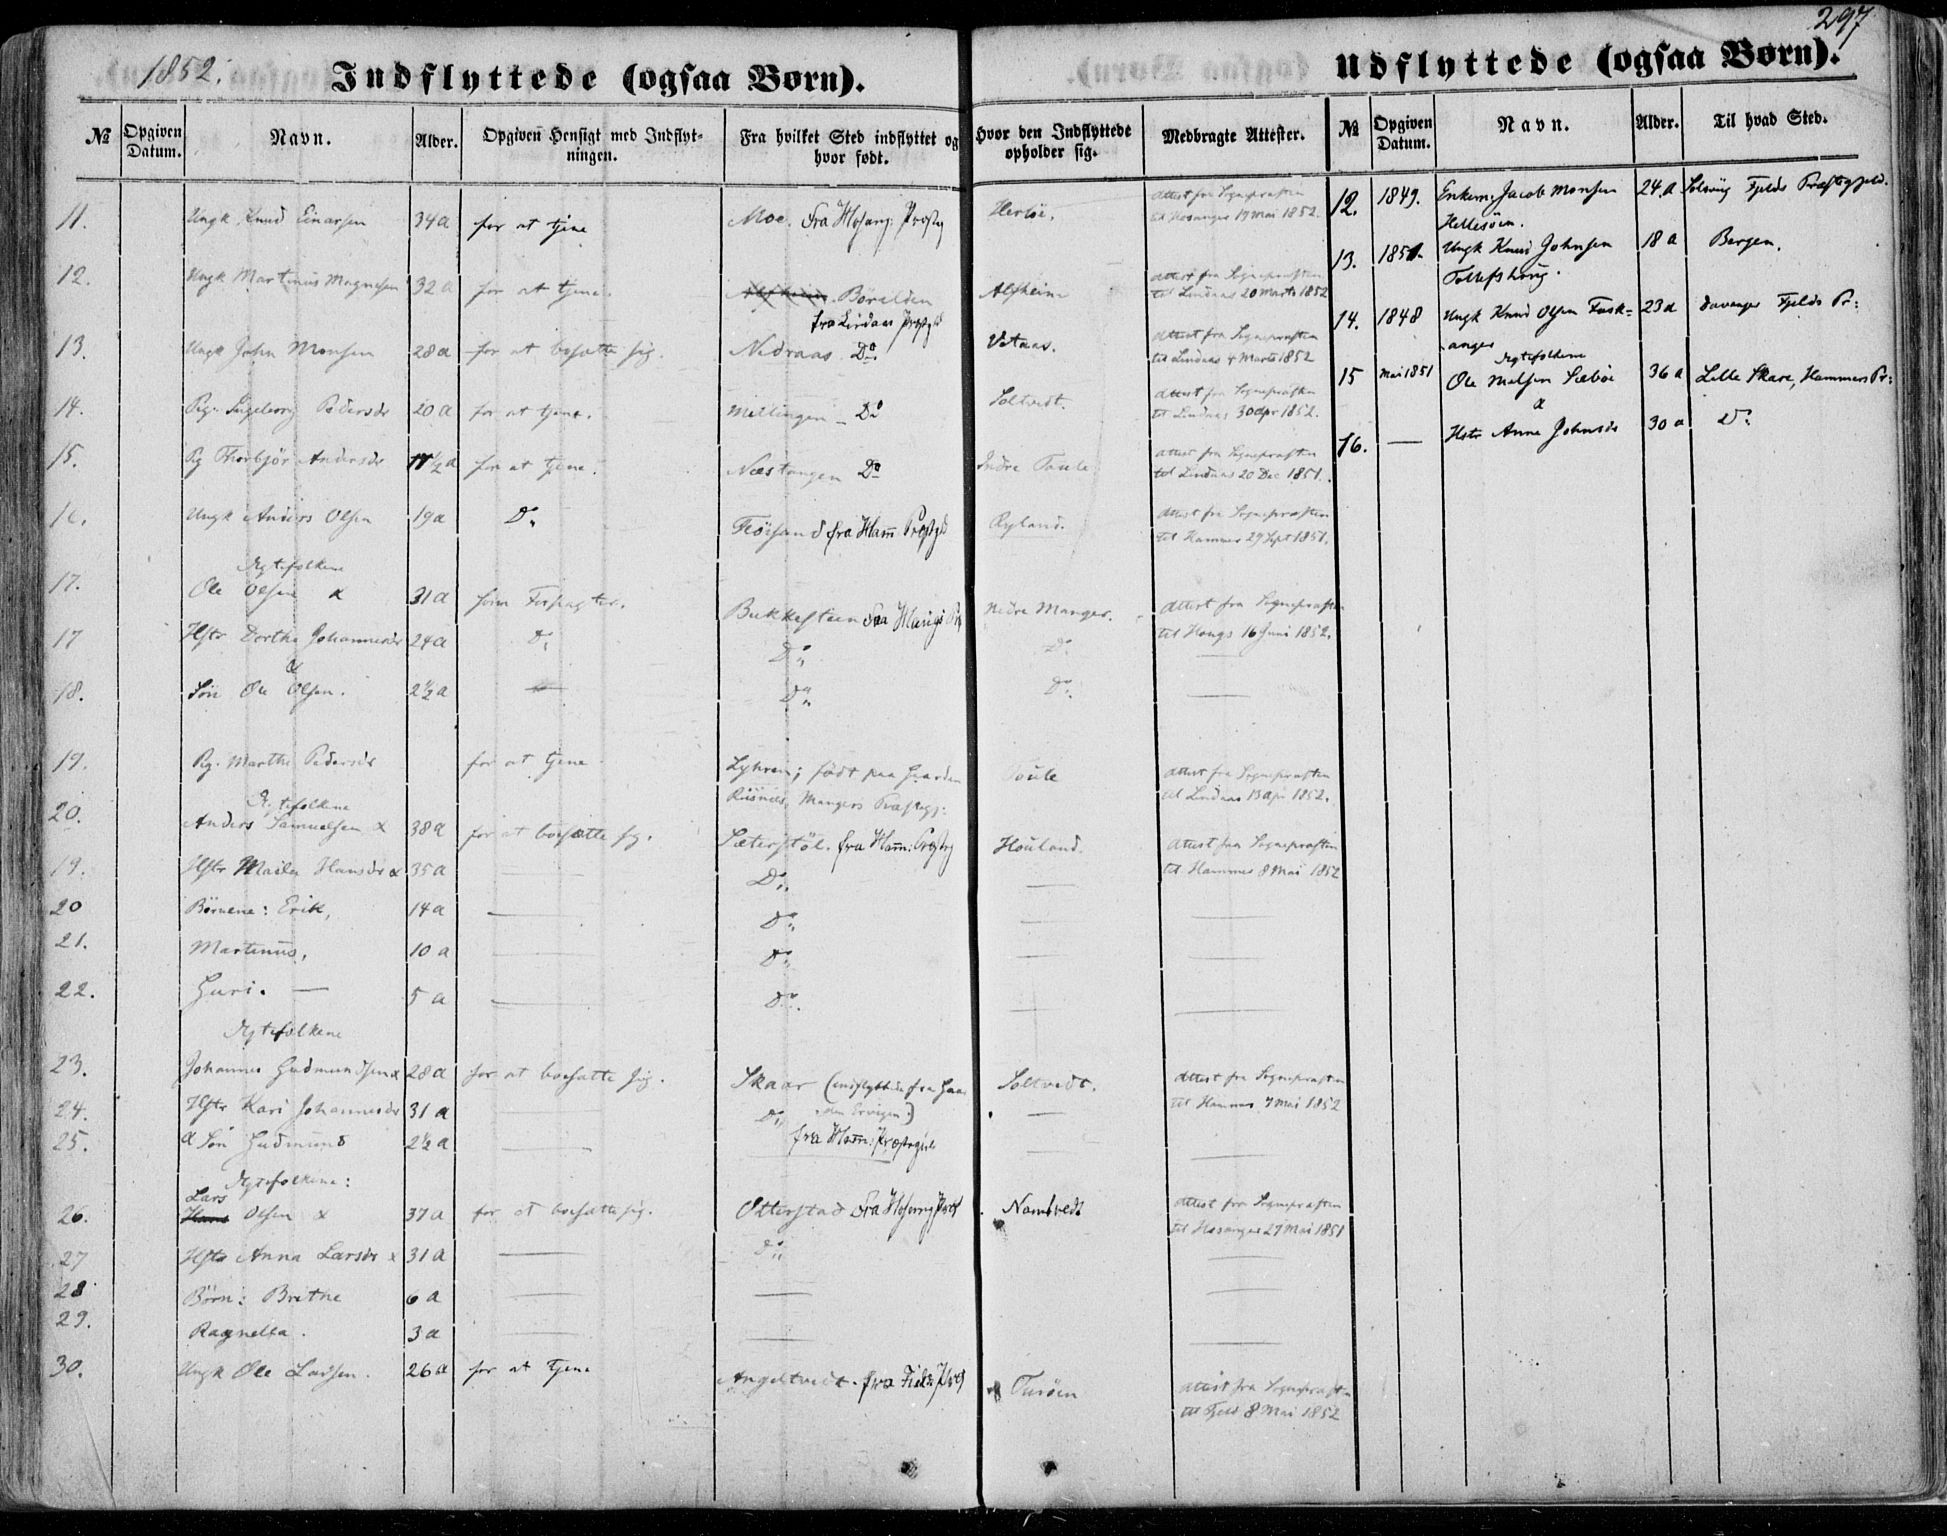 297
1852.
Indflyttede (ogsaa Børn).
Udflyttede (ogsaa Børn).
№ Opgiven Datum. Navn. Alder. Opgiven Hensigt med Indflytningen. Fra hvilket Sted indflyttet og hvor født. Hvor den Indflyttede opholder sig. Medbragte Attester.
11. Ungk. Knud Einarsen 34 a for at tjene Moe. Fra Hosang: Præstg Herløe. Attest fra Sognepræsten til Hosanger 17 Mai 1852.
12. Ungk Martinus Magnesen 32 a for at tjene. Børilden fra Lindaas Præstgld Alsheim Attest fra Sognepræsten til Lindaas 20 Marts 1852
13. Ungk John Monsen 28 a for at bosætte sig. Nedraas D: Vetaas. Attest fra Sognepræsten til Lindaas 4 Marts 1852
14. Pig. Ingeborg Pedersdr 20 a for at tjene. Mellingen D: Soltvedt. Attest fra Sognepræsten til Lindaas 30 Apr 1852.
15. Pig Thorbjør Andersdr 17½ a for at tjene. Næstangen D: Indre Toule Attest fra Sognepræsten til Lindaas 20 Dec 1851.
16. Ungk Anders Olsen 19 a D: Fløisand fra Ham Præstgld Ryland. Attest fra Sognepræsten til Hammer 29 Sept 1851.
Ægtefolkene
17. Ole Olsen & 31 a som Forpagter. Bukkesteen Fra Nedre Manger. Attest fra Sognepræsten til Hougs 16 Juni 1852.
17 Hstr Dorthe Johannesdr 24 a D: D: D:
&
18. Søn Ole Olsen. 2½ a D: D:
19. Pig. Marthe Pedersdr for at tjene Lyhren; født paa Gaarden Riisnes, Mangers Præstegj: Toule Attest fra Sognepræsten til Lindaas 13 Apr 1852.
Ægtefolkene
20. Anders Samuelsen & 38 a for at bosætte sig. Sæterstøl. fra Ham: Præstg Houland. Attest fra Sognepræsten til Hammer 8 Mai 1852
19. Hstr Hansdr & 35 a D:
20 Børnene: Erik, 14 a D:
21. Martinus, 10 a D:
22. Guri. 5 a D:
Ægtefolkene
23. Johannes Gudmundsen & 28 a for at bosætte sig. Skaar (indflyttede fra Gaarden Ervigen.) Soltvedt. Attest fra Sognepræsten til Hammer 7 Mai 1852
24. Hstr Kari Johannesdr 31 a D:
25. & Søn Gudmund 2½ a fra Ham: Præstegield
Ægtefolkene:
26. Lars Hans Olsen & 37 a for at bosætte sig. Otterstad Fra Hosang Præst Namtvedt Attest fra Sognepræsten til Hosanger 27 Mai 1851
27 Hstr Anna Larsdr & 31 a D:
28 Børn: Brithe 6 a
29. Ragnella. 3 a
30. Ungk Ole Larsen. 26 a for at tjene Angeltvedt. fra Field Turøen Attest fra Sognepræsten til Fjeld 8 Mai 1852
№ Opgiven Datum. Navn. Alder. Til hvad Sted.
12. 1849. Enkem. Jacob Monsen Hellesøen. 24 a Solsviig Fjelds Præstegjeld.
13. 1851. Ungk Knud Johnsen Tollefshoug. 18 a Bergen.
14. 1848 Ungk Knud Olsen Fuskanger 23 a Davanger Fjelds Pr:
Ægtefolkene
15 Mai 1851 Ole Sæbøe 36 a Lille Skare, Hammers Pr:
&
16. Hstr Anne Johnsdr 30 a D: